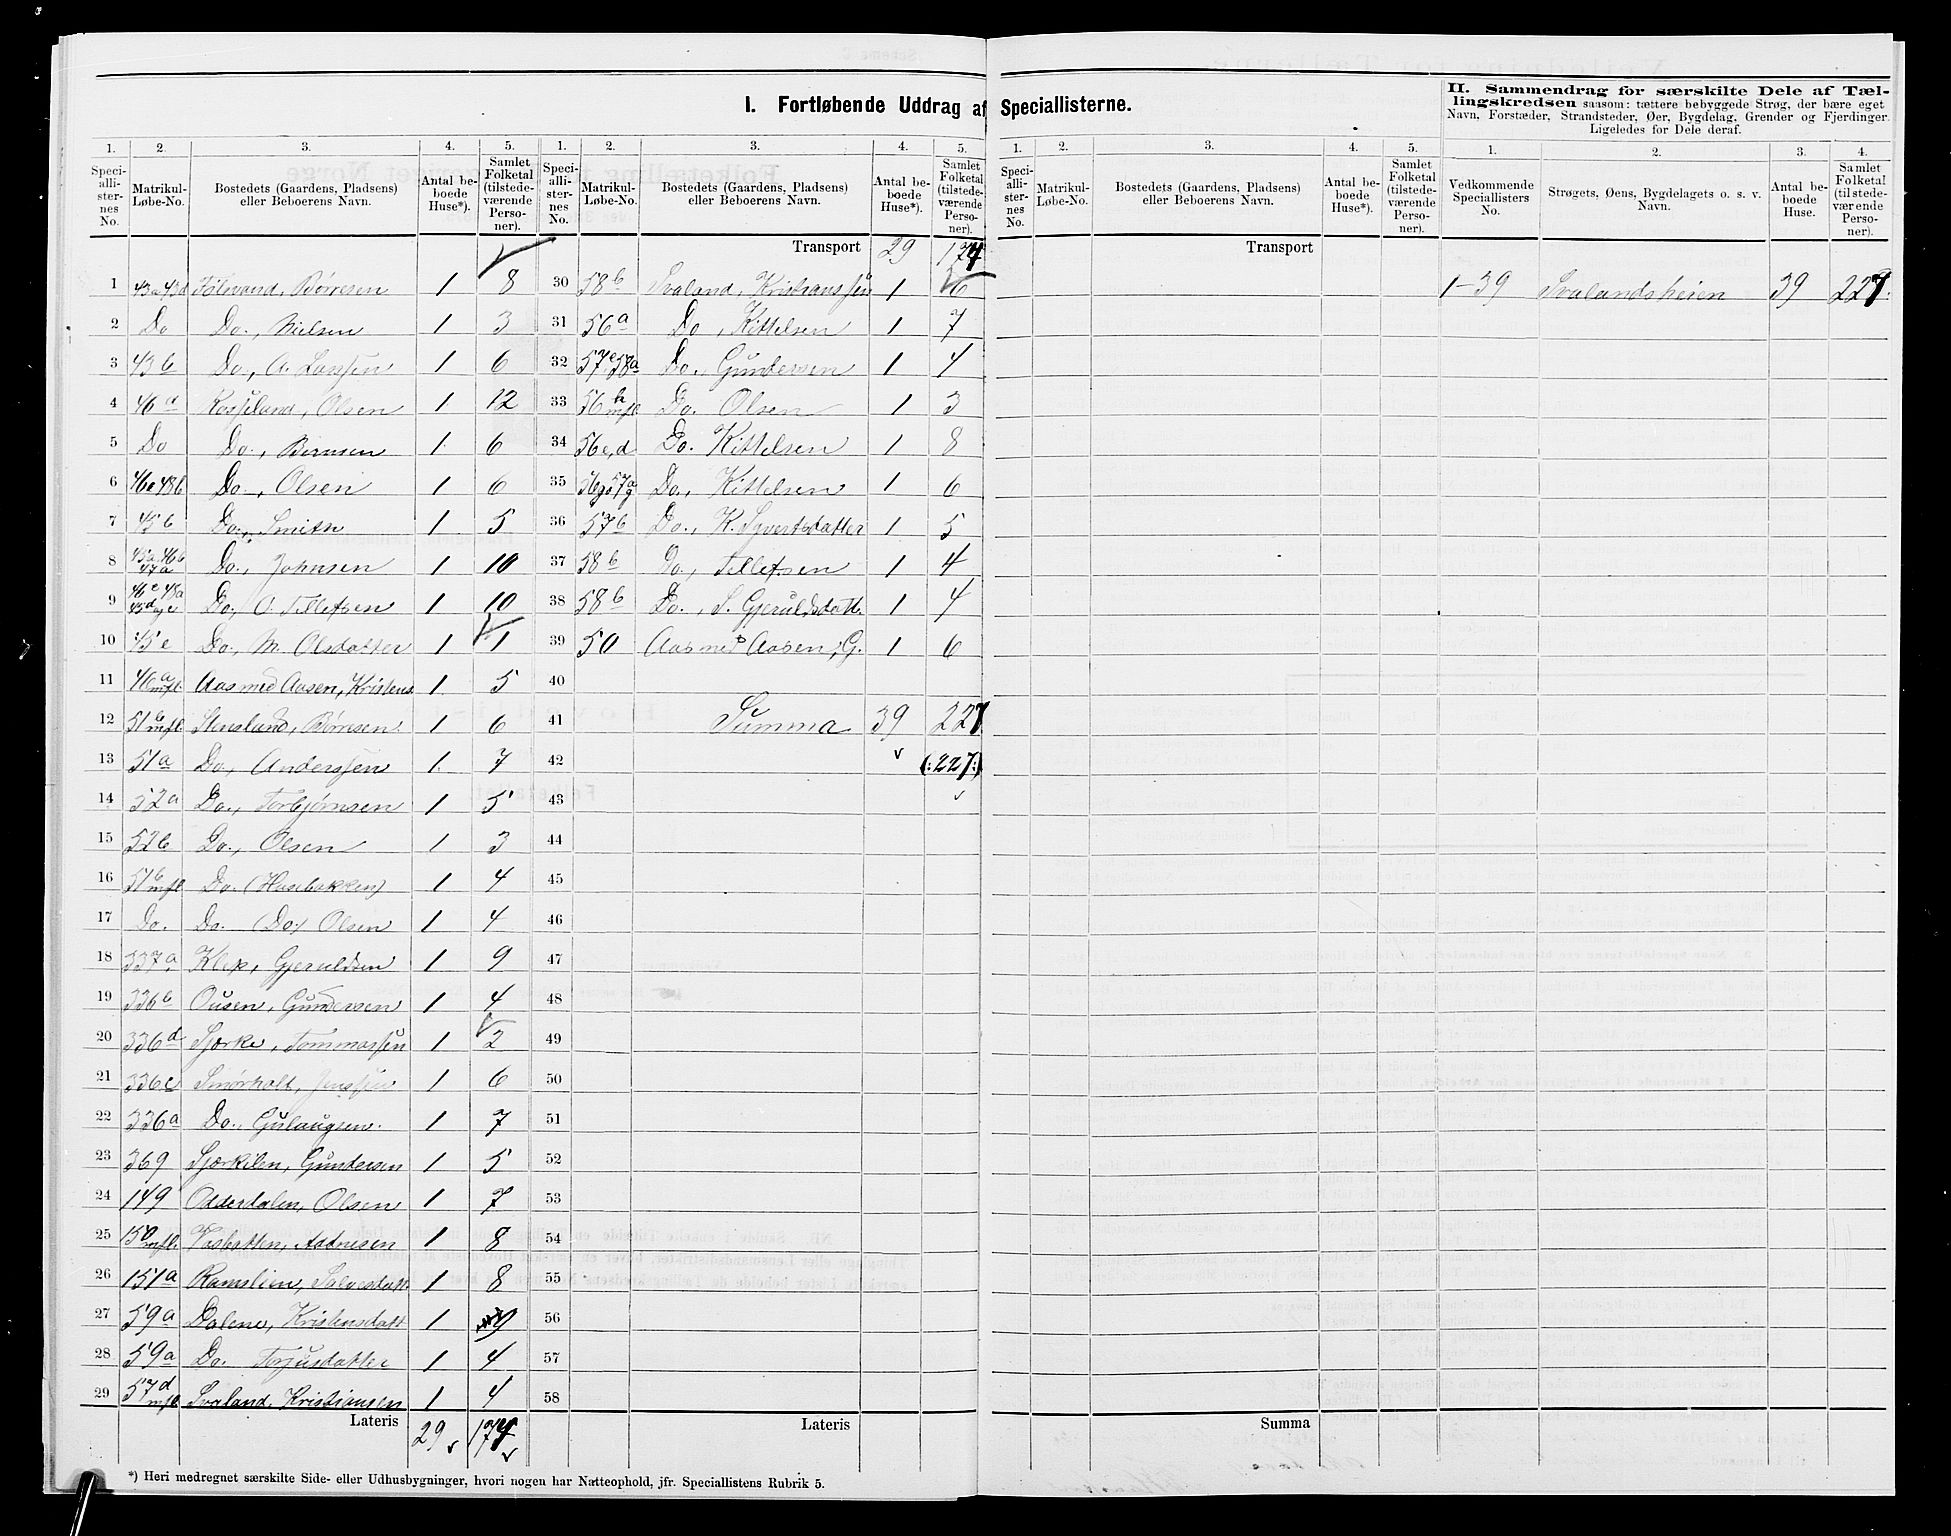 I. Fortløbende Uddrag af Speciallisterne.
II. Sammendrag for særskilte Dele af Tæl-
lingskredsen saasom: tættere bebyggede Strøg, der bære eget
Navn, Forstæder, Strandsteder, Øer, Bygdelag, Grender og Fjerdinger.
Ligeledes for Dele deraf.
1. 2. 3. 4. 5. 1. 2. 3. 4. 5. 1. 2. 3. 4. 5. 1. 2. 3. 4.
Speci-alli-ster-nes No. Matrikul-Løbe-No. Bostedets (Gaardens, Pladsens) eller Beboerens Navn. Antal be-boede Huse*). Samlet Folketal (tilstede-værende Perso-ner).
Speci-alli-ster-nes No. Matrikul-Løbe-No. Bostedets (Gaardens, Pladsens) eller Beboerens Navn. Antal be-boede Huse*). Samlet Folketal (tilstede-værende Perso-ner).
Speci-alli-ster-nes No. Matrikul-Løbe-No. Bostedets (Gaardens, Pladsens) eller Beboerens Navn. Antal be-boede Huse*). Samlet Folketal (tilstede-værende Perso-ner).
Vedkommende Speciallisters No. Strøgets, Øens, Bygdelagets o. s. v. Navn. Antal be-boede Huse. Samlet Folketal (tilstede-værende Perso-ner).
Transport 29 174
Transport
1 43a43d Fölevand, Börresen 1 8
2 Do Do., Nielsen 1 3
3 43b Do, A. Larssen 1 6
4 46d Rosseland, Olsen 1 12
5 Do Do., Berntsen 1 6
6 46e48b Do, Olsen 1 6
7 45b Do., Smith 1 5
8 45a46b 47a Do., Johnsen 1 10
9 Do., O. Tellefsen 1 10
10 45e Do, M. Olsdatter 1 1
11 46a mfl. Aas med Aasen, Kristens. 1 5
12 51 mfl Stensland, Börresen. 1 6
13 51a Do, Anderssen 1 7
14 52a Do., Torbjørnsen 1 5
15 52b Do., Olsen 1 3
16 51b mfl Do. (Husebakken) 1 4
17 Do. Do. (Do) Olsen 1 4
18 337a Klep, Gjeruldsen 1 9
19 336b Ousen, Gundersen 1 4
20 336d Sjerke, Tommassen 1 2
21 336c Smørholt, Jenssen 1 6
22 336a Do., Gulaugsen. 1 7
23 369 Sjerkilen, Gundersen 1 5
24 149 Odderdalen, Olsen 1 7
25 150 mfl. Vasbotten, Aadnesen 1 8
26 151a Ramslien, Salvesdatt. 1 8
27 59a Dalene, Kristensdatt 1
28 59a Do. Torjusdatter 1 4
29 57d mfl Svaland, Kristiansen 1 4
Lateris 29 174
30 58b Svaland, Kristianssen 1 6
31 56a Do, Kittelsen 1 7
32 57c58a Do., Gundersen 1 4
33 56b mfl Do. Olsen 1 3
34 56c,d Do. Kittelsen 1 8
35 Do., Kittelsen 1 6
36 57b Do., K. Syvertsdatter 1 5
37 58b Do., Tellefsen 1 4
38 58b Do., S. Gjeruldsdatt. 1 4
39 50 Aas med Aasen, G. 1 6
40
41 Summa 39 227
42 (:227:)
43
44
45
46
47
48
49
50
51
52
53
54
55
56
57
58
Lateris
1-39 Svalandsheien 39 227.
Summa
*) Heri medregnet særskilte Side- eller Udhusbygninger, hvori nogen har Natteophold, jfr. Speciallistens Rubrik 5.